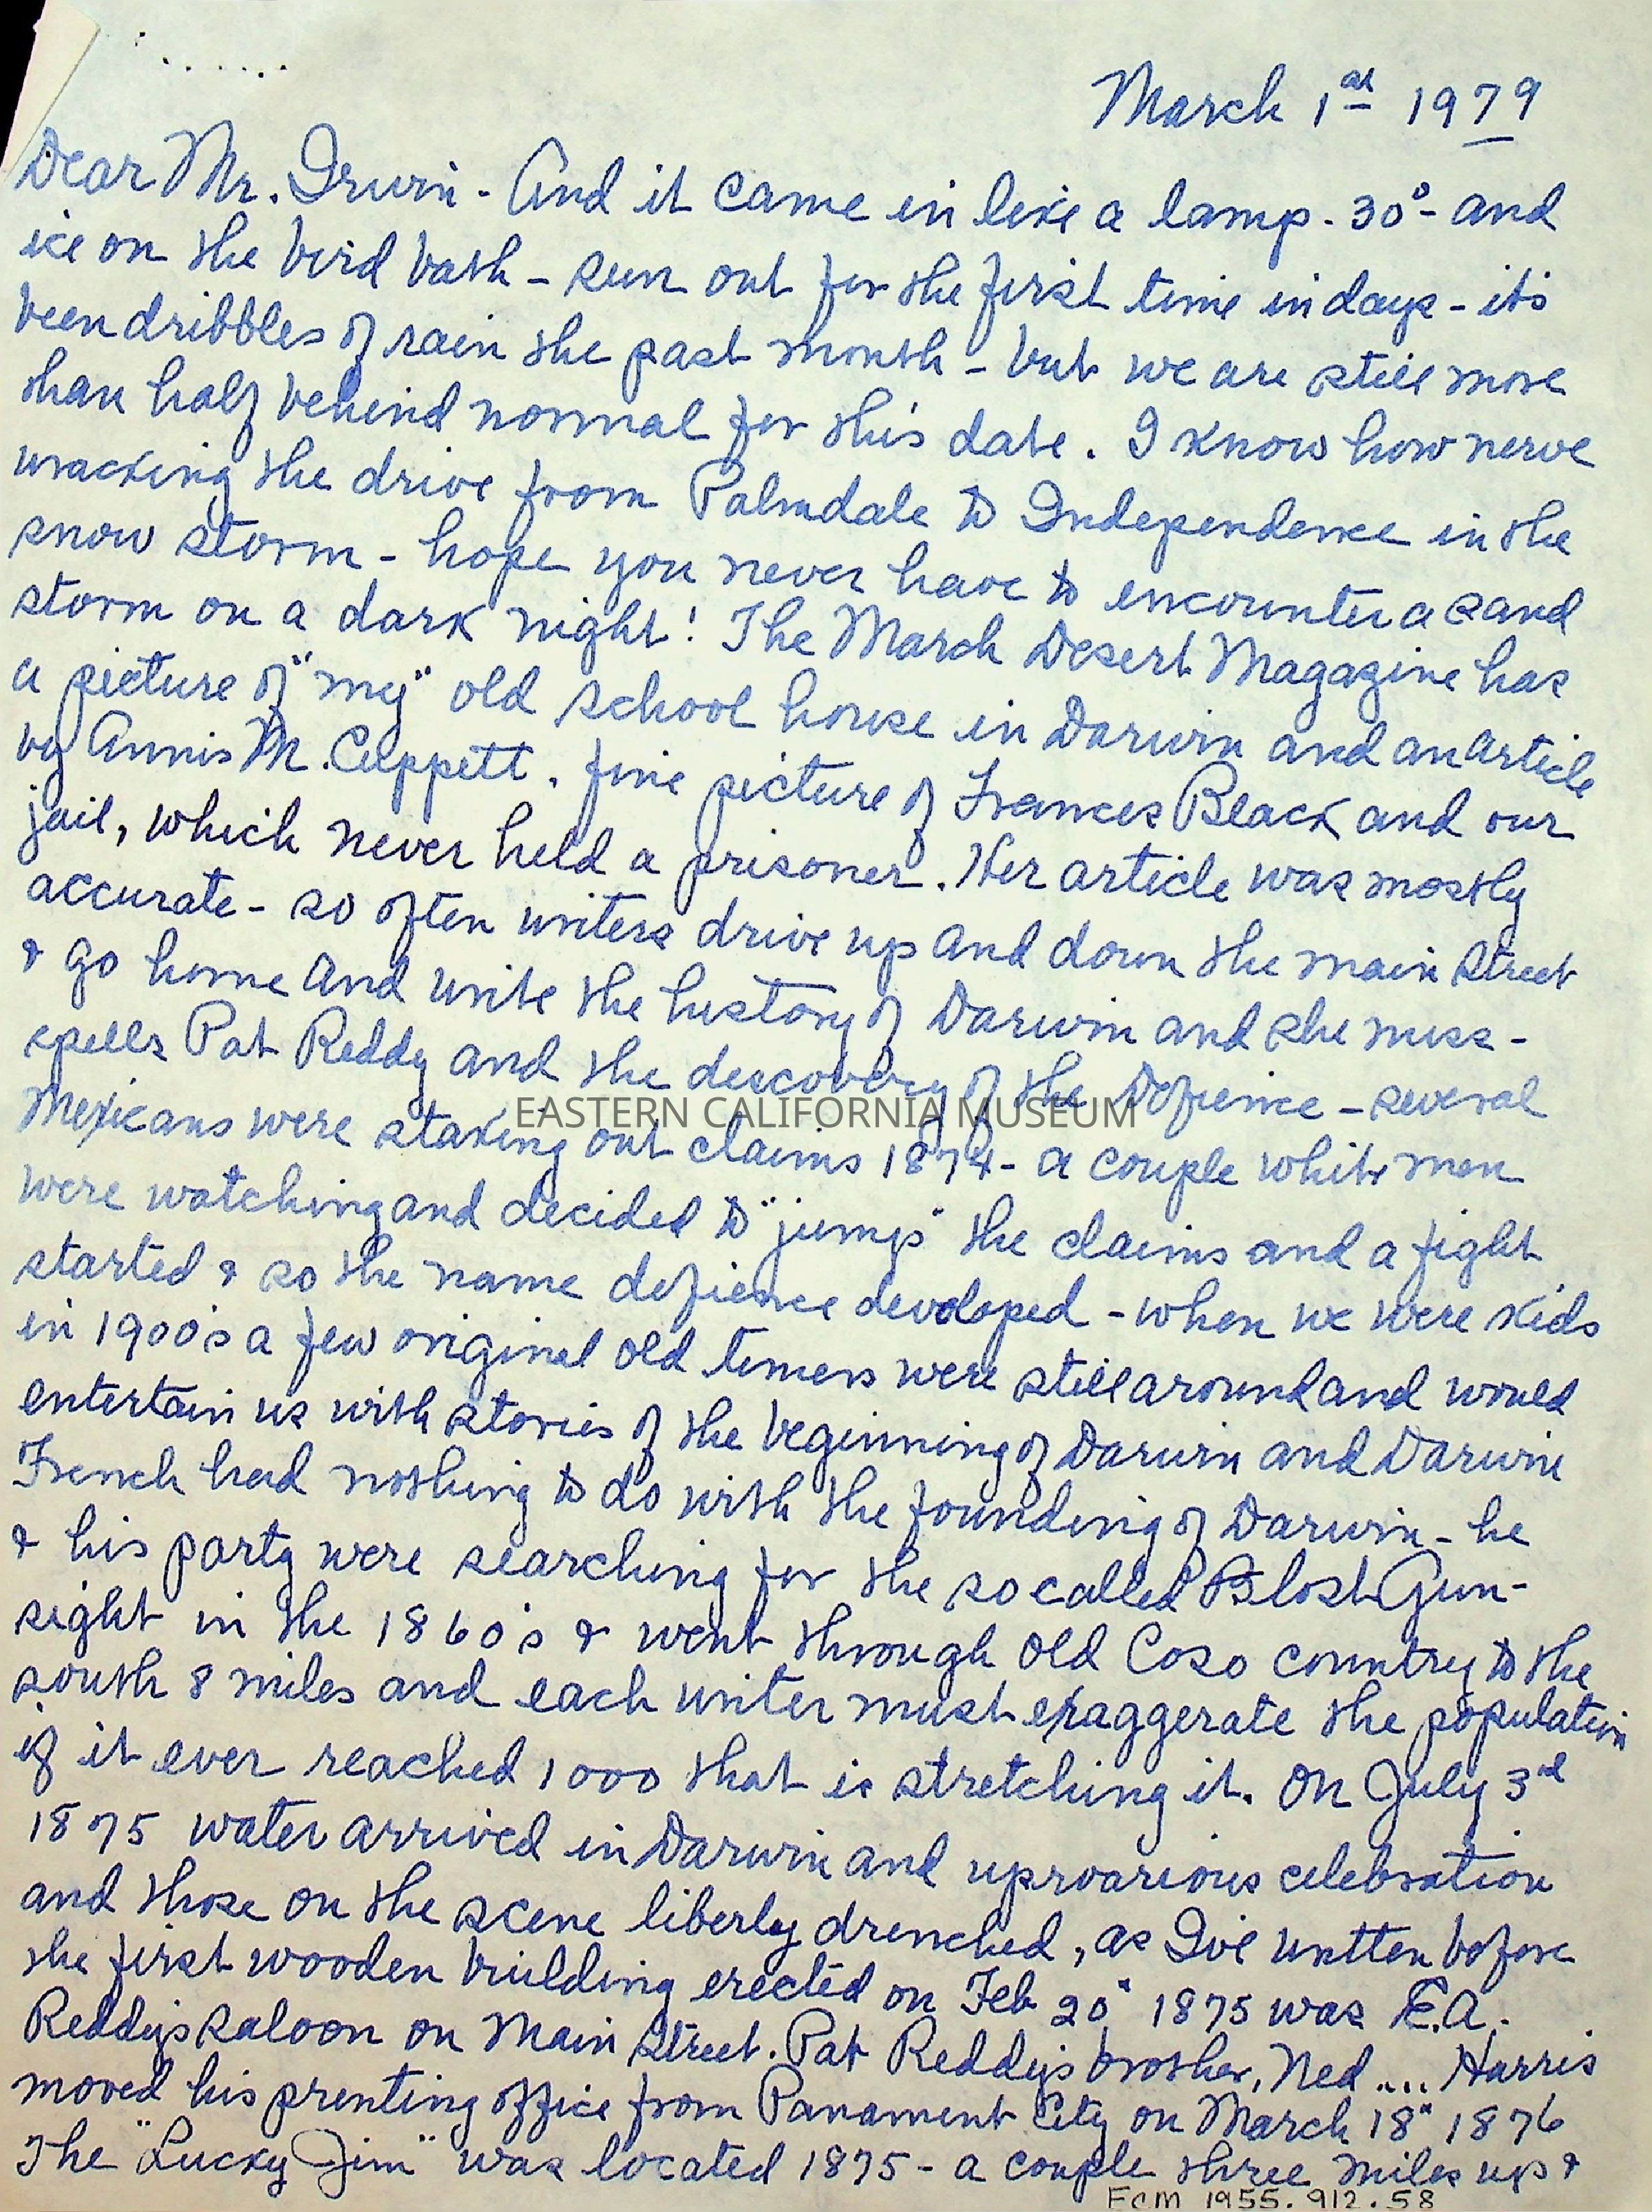 March 1st 1979
Dear Mr. Irwin - And it came in like a lamp - 30° - and
ice on the bird bath - sun out for the first time in days - it's
been dribbles of rain the past month - but we are still more
than half behind normal for this date. I know how nerve
wracking the drive from Palmdale to Independence in the
snow storm - hope you never have to encounter a sand
storm on a dark night! The March Desert Magazine has
a picture of "my" old school house in Darwin and an article
by Annis M. Cuppett. fine picture of Frances Black and our
jail, which never held a prisoner. Her article was mostly
accurate - so often writers drive up and down the main street
& go home and write the history of Darwin and she miss-
spells Pat Reddy and the discovery of the Defience - several
EASTERN CALIFORNIA MUSEUM
Mexicans were staking out claims 1874 - a couple white men
were watching and decided to "jump" the claims and a fight
started & so the name defience developed - when we were kids
in 1900's a few original old timers were still around and would
entertain us with stories of the beginning of Darwin and Darwin
French had nothing to do with the founding of Darwin - he
& his party were searching for the so called lost Gun-
sight in the 1860's & went through old Coso country to the
south 8 miles and each writer must exaggerate the population
if it ever reached 1000 that is stretching it. On July 3rd
1875 water arrived in Darwin and uproarious celebration
and those on the scene liberly drenched, as I've written before
the first wooden building erected on Feb 20" 1875 was E.A.
Reddy's saloon on Main Street. Pat Reddy's brother, Ned .... Harris
moved his prenting office from Panament City on March 18" 1876
The "Lucky Jim" was located 1875 - a couple three miles up &
Ecm 1955.912.58